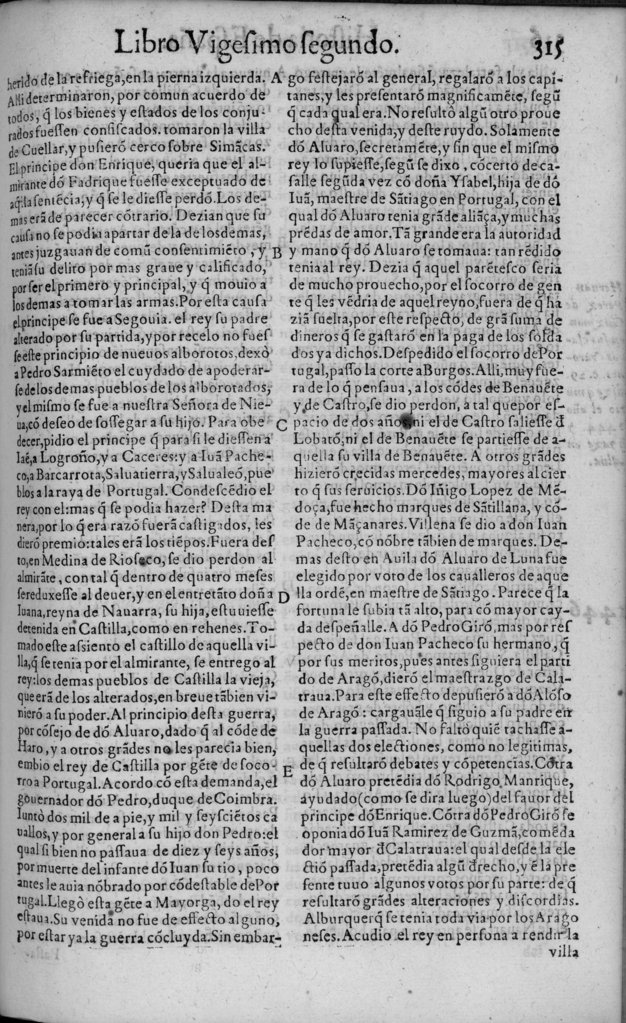 Libro Vigesimo segundo. 315
herido de la refriega, en la pierna izquierda.
Alli determinaron, por comun acuerdo de
todos, q̃ los bienes y estados de los conju-
rados fuessen confiscados. tomaron la villa
de Cuellar, y pusierõ cerco sobre Simãcas.
El principe don Enrique, queria que el al-
mirante dõ Fadrique fuesse exceptuado de
aq̃lla sentẽcia, y q̃ se le diesse perdõ. Los de-
mas erã de parecer cõtrario. Dezian que su
causa no se podia apartar de la de losdemas,
antes juzgauan de comũ consentimiẽto, y
teniã su delito por mas graue y calificado,
por ser el primero y principal, y q̃ mouio a
los demas a tomar las armas. Por esta causa
el principe se fue a Segouia. el rey su padre
alterado por su partida, y por recelo no fues
se este principio de nueuos alborotos, dexò
a Pedro Sarmiẽto el cuydado de apoderar-
se de los demas pueblos de los alborotados,
y el mismo se fue a nuestra Señora de Nie-
ua, cõ deseo de sossegar a su hijo. Para obe
decer, pidio el principe q̃ para si le diessen a
Iaẽ, a Logroño, y a Caceres: y a Iuã Pache-
co, a Barcarrota, Saluatierra, y Salualeõ, pue
blos a la raya de Portugal. Condescẽdio el
rey con el: mas q̃ se podia hazer? Desta ma
nera, por lo q̃ era razõ fuerã castigados, les
dierõ premio: tales erã los tiẽpos. Fuera des
to, en Medina de Rioseco, se dio perdon al
almirãte, con tal q̃ dentro de quatro meses
se reduxesse al deuer, y en el entretãto doña
Iuana, reyna de Nauarra, su hija, estuuiesse
detenida en Castilla, como en rehenes. To-
mado este assiento el castillo de aquella vi-
lla, q̃ se tenia por el almirante, se entrego al
rey: los demas pueblos de Castilla la vieja,
que erã de los alterados, en breue tãbien vi-
nierõ a su poder. Al principio desta guerra,
por cõsejo de dõ Aluaro, dado q̃ al cõde de
Haro, y a otros grãdes no les parecia bien,
embio el rey de Castilla por gẽte de soco-
rro a Portugal. Acordo cõ esta demanda, el
gouernador dõ Pedro, duque de Coimbra.
Iuntò dos mil de a pie, y mil y seysciẽtos ca
uallos, y por general a su hijo don Pedro: el
qual si bien no passaua de diez y seys años,
por muerte del infante dõ Iuan su tio, poco
antes le auia nõbrado por cõdestable de Por
tugal. Llegò esta gẽte a Mayorga, do el rey
estaua. Su venida no fue de effecto alguno,
por estar ya la guerra cõcluyda. Sin embar-
A go festejarõ al general, regalarõ a los capi-
tanes, y les presentarõ magnificamẽte, segũ
q̃ cada qual era. No resultò algũ otro proue
cho desta venida, y deste ruydo. Solamente
dõ Aluaro, secretamẽte, y sin que el mismo
rey lo supiesse, segũ se dixo, cõcerto de ca-
salle segũda vez cõ doña Ysabel, hija de dõ
Iuã, maestre de Sãtiago en Portugal, con el
qual dõ Aluaro tenia grãde aliãça, y muchas
prẽdas de amor. Tã grande era la autoridad
B y mano q̃ dõ Aluaro se tomaua: tan rẽdido
tenia al rey. Dezia q̃ aquel parẽtesco seria
de mucho prouecho, por el socorro de gen
te q̃ les vẽdria de aquel reyno, fuera de q̃ ha
ziã suelta, por este respecto, de grã suma de
dineros q̃ se gastarõ en la paga de los solda
dos ya dichos. Despedido el socorro de Por
tugal, passo la corte a Burgos. Alli, muy fue-
ra de lo q̃ pensaua, a los cõdes de Benauẽte
y de Castro, se dio perdon, a tal que por es-
C pacio de dos años ni el de Castro saliesse d̃
Lobatõ, ni el de Benauẽte se partiesse de a-
quella su villa de Benauẽte. A otros grãdes
hizierõ crecidas mercedes, mayores al cier
to q̃ sus seruicios. Dõ Iñigo Lopez de Mẽ-
doça, fue hecho marques de Sãtillana, y cõ-
de de Mãçanares. Villena se dio a don Iuan
Pacheco, cõ nõbre tãbien de marques. De-
mas desto en Auila dõ Aluaro de Luna fue
elegido por voto de los caualleros de aque
D lla ordẽ, en maestre de Sãtiago. Parece q̃ la
fortuna le subia tã alto, para cõ mayor cay-
da despeñalle. A dõ Pedro Girõ, mas por res
pecto de don Iuan Pacheco su hermano, q̃
por sus meritos, pues antes siguiera el parti
do de Aragõ, dierõ el maestrazgo de Cala-
traua. Para este effecto depusierõ a dõ Alõso
de Aragõ: cargauãle q̃ siguio a su padre en
la guerra passada. No faltò quiẽ tachasse a-
quellas dos electiones, como no legitimas,
E de q̃ resultarõ debates y cõpetencias. Cõtra
dõ Aluaro pretẽdia dõ Rodrigo Manrique,
ayudado (como se dira luego) del fauor del
principe dõ Enrique. Cõtra dõ Pedro Girõ se
oponia dõ Iuã Ramirez de Guzmã, comẽda
dor mayor d̃ Calatraua: el qual desde la ele
ctiõ passada, pretẽdia algũ d̃recho, y ẽ la pre
sente tuuo algunos votos por su parte: de q̃
resultarõ grãdes alteraciones y discordias.
Alburquerq̃ se tenia toda via por los Arago
neses. Acudio el rey en persona a rendir la
villa